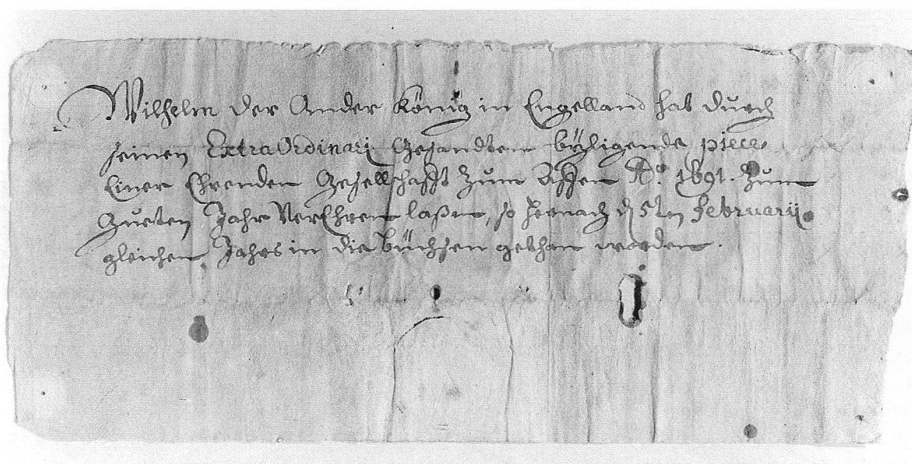 Wilhelm der Ander König in Engelland hat durch
seinen ExtraOrdinari Gesandten byligende piece
Einer Ehrenden Gesellschafft Zum Affen Aº 1691. Zum
Gueten Jahr VerEhren laßen, so hernach d 5ten februarij
gleichen Jahrs in die büchsen gethan worden.